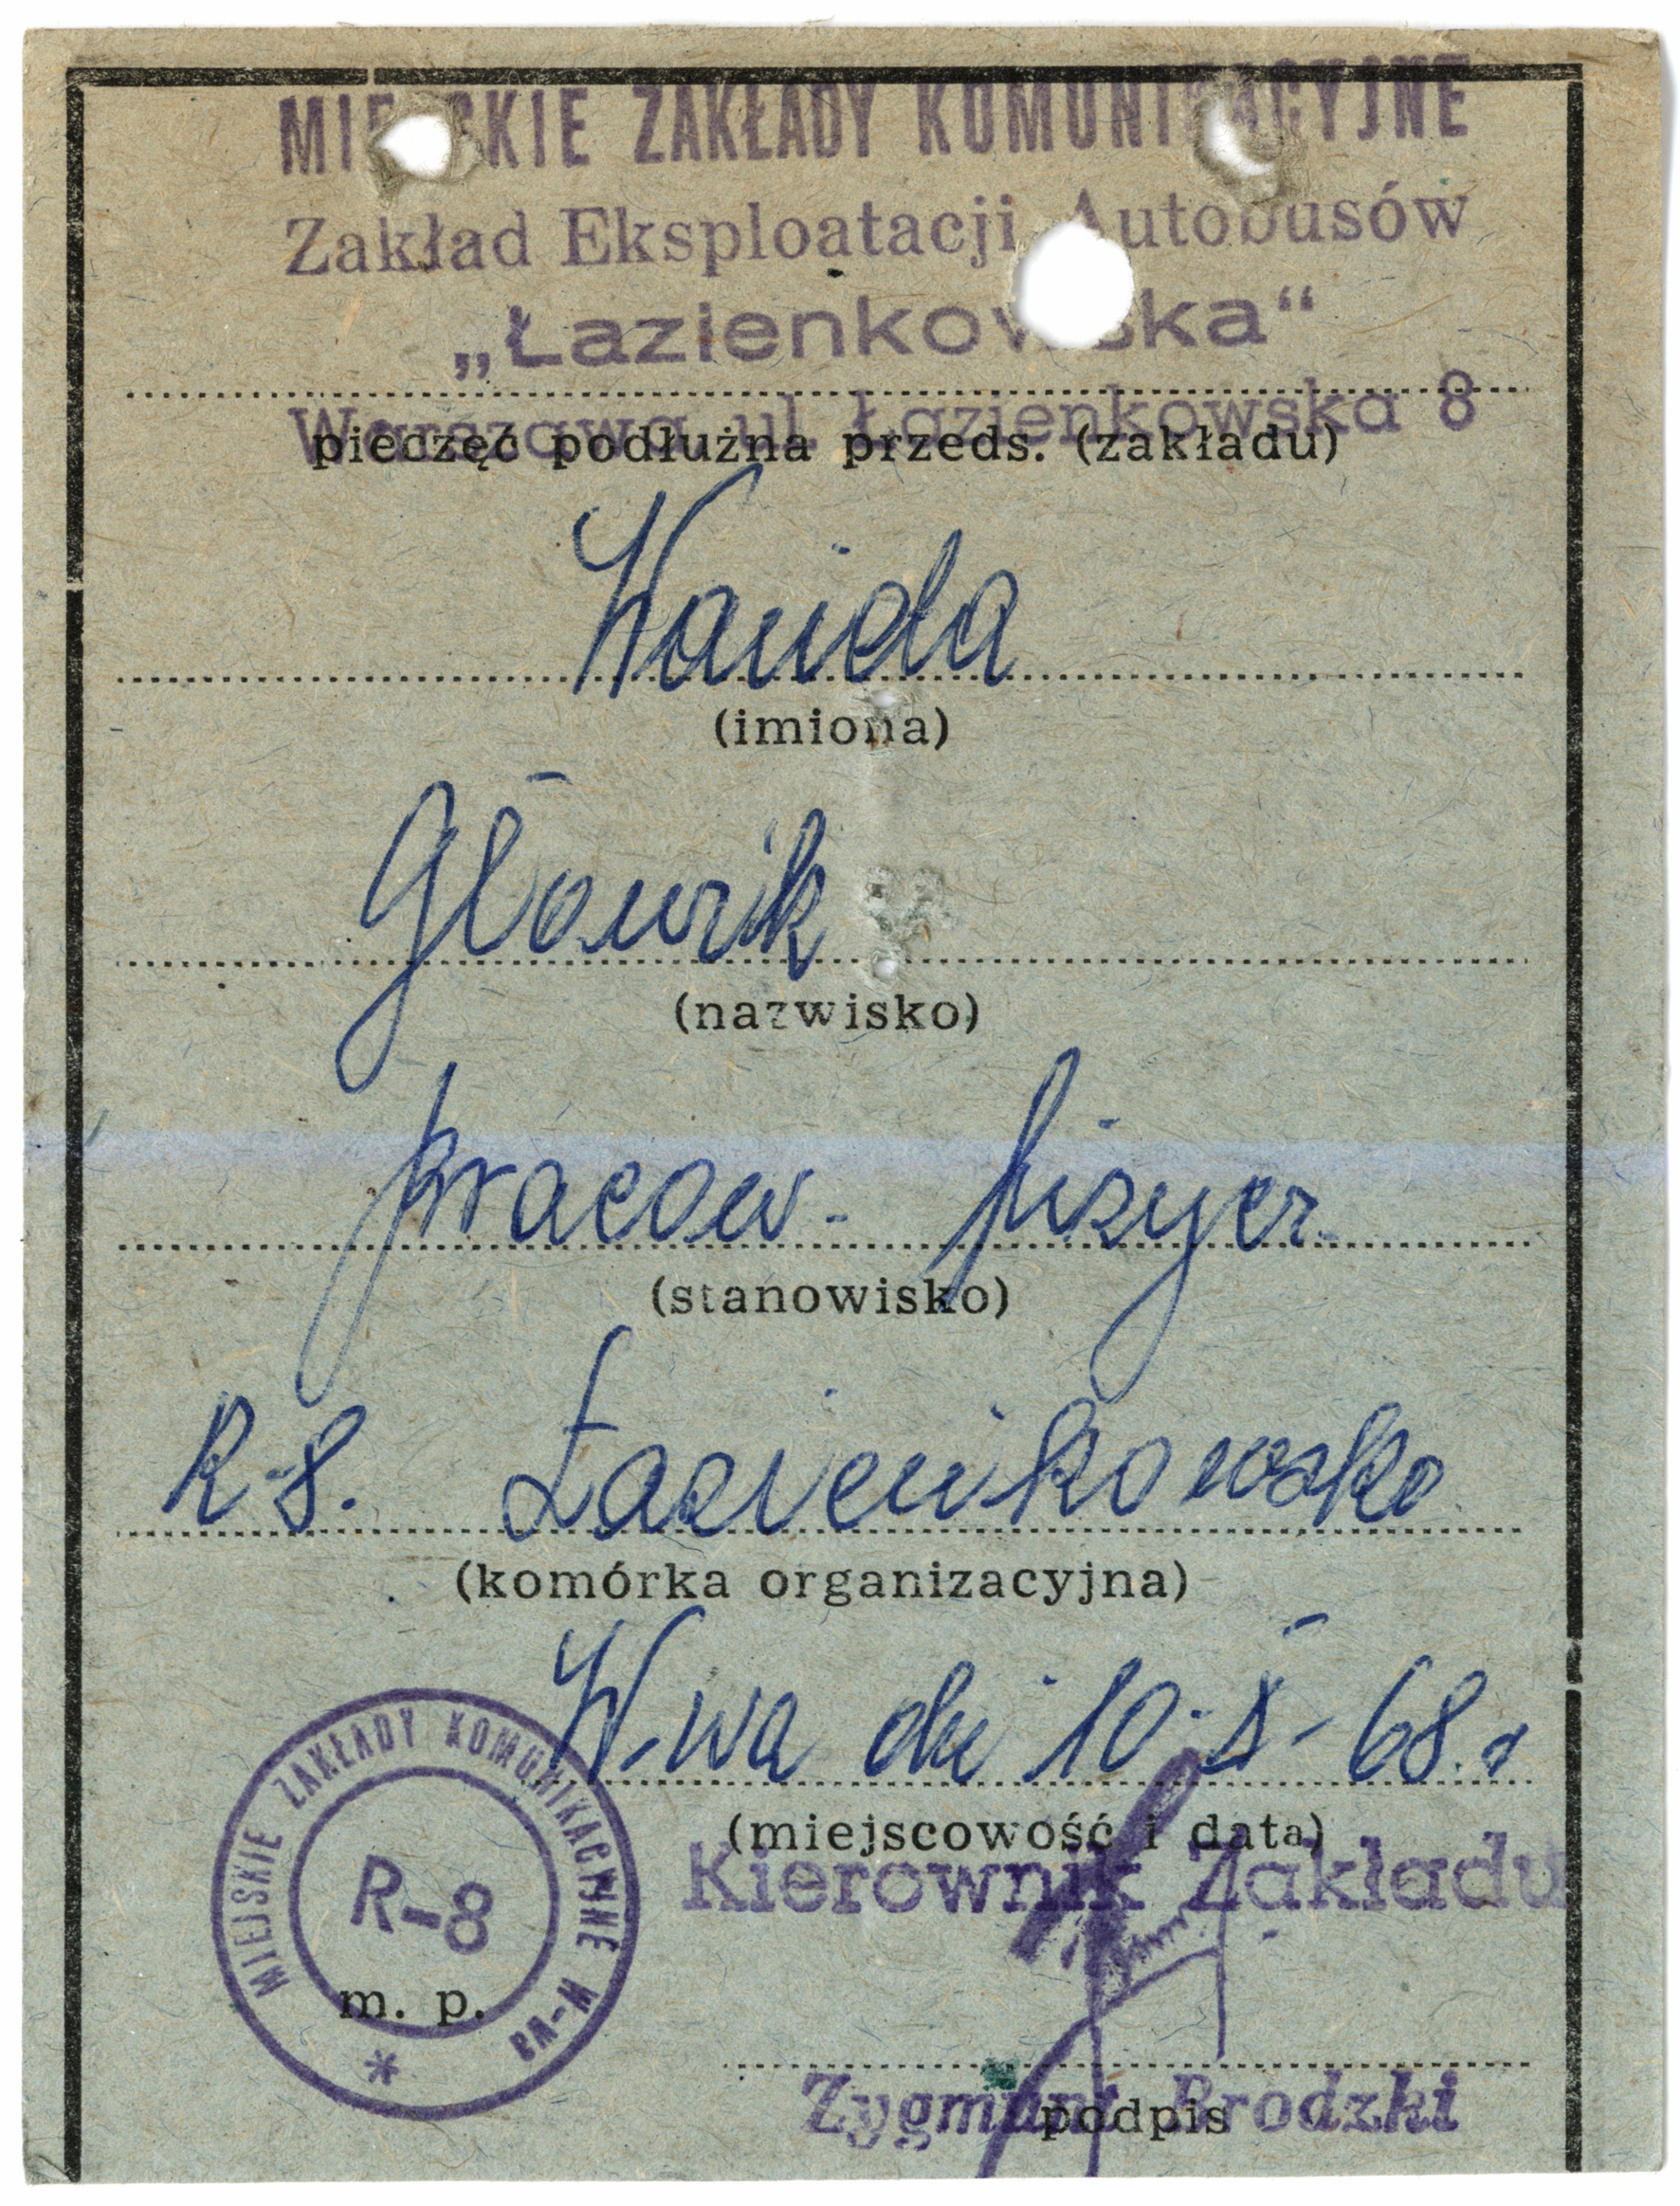 MIEJSKIE ZAKŁADY KOMUNIKACYJNE
Zakład Eksploatacji Autobusów
„Łazienkowska“
Warszawa ul. Łazienkowska 8
pieczęć podłużna przeds. (zakładu)
Wanda
(imiona)
Główik
(nazwisko)
pracow. fizycz.
(stanowisko)
R-8. Łazienkowska
(komórka organizacyjna)
W-wa dn 10-X-68.r
(miejscowość i data)
Kierownik Zakładu
MIEJSKIE ZAKŁADY KOMUNIKACYJNE W-wa
R-8
m. p.
Zygmunt Brodzki
podpis